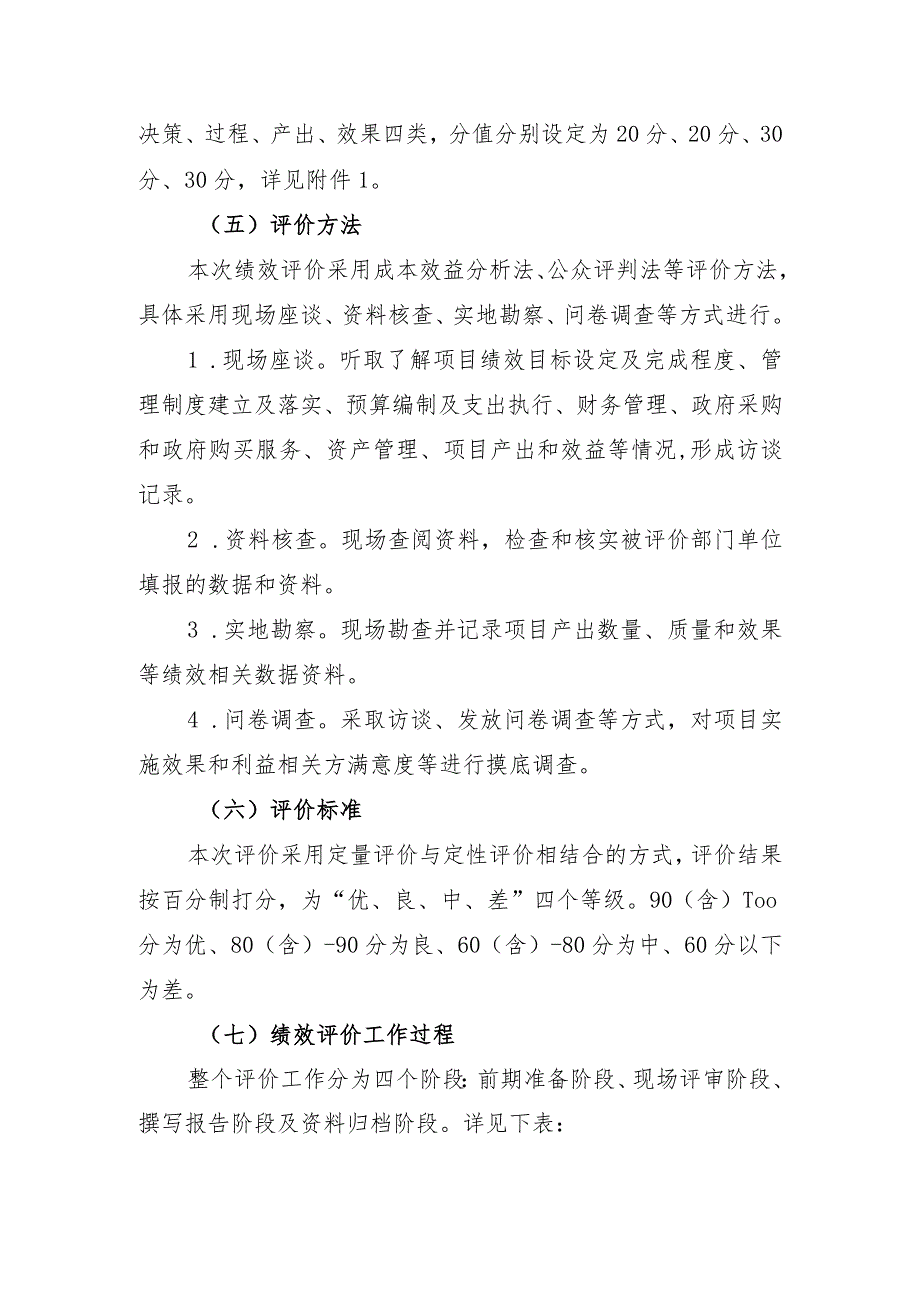 决策、过程、产出、效果四类，分值分别设定为20分、20分、30
分、30分，详见附件1。
（五）评价方法
本次绩效评价采用成本效益分析法、公众评判法等评价方法，
具体采用现场座谈、资料核查、实地勘察、问卷调查等方式进行。
1 .现场座谈。听取了解项目绩效目标设定及完成程度、管
理制度建立及落实、预算编制及支出执行、财务管理、政府采购
和政府购买服务、资产管理、项目产出和效益等情况,形成访谈
记录。
2 .资料核查。现场查阅资料，检查和核实被评价部门单位
填报的数据和资料。
3 .实地勘察。现场勘查并记录项目产出数量、质量和效果
等绩效相关数据资料。
4 .问卷调查。采取访谈、发放问卷调查等方式，对项目实
施效果和利益相关方满意度等进行摸底调查。
（六）评价标准
本次评价采用定量评价与定性评价相结合的方式，评价结果
按百分制打分，为“优、良、中、差”四个等级。90（含）Too
分为优、80（含）-90分为良、60（含）-80分为中、60分以下
为差。
（七）绩效评价工作过程
整个评价工作分为四个阶段：前期准备阶段、现场评审阶段、
撰写报告阶段及资料归档阶段。详见下表：